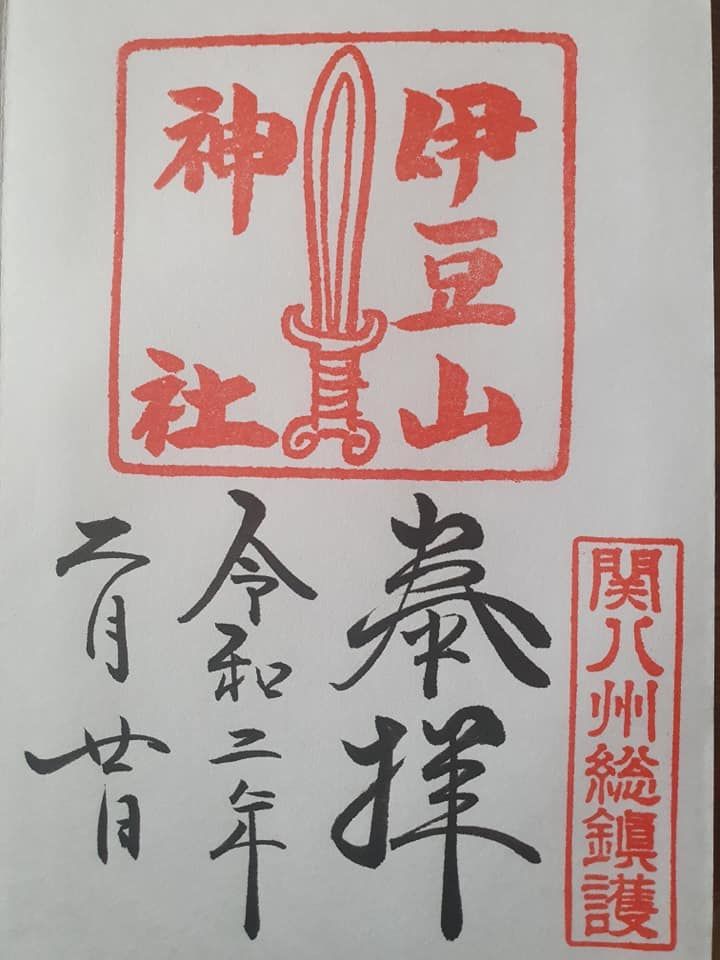 関八州総鎮護
伊豆山
神社
奉拝
令和二年
二月廿日